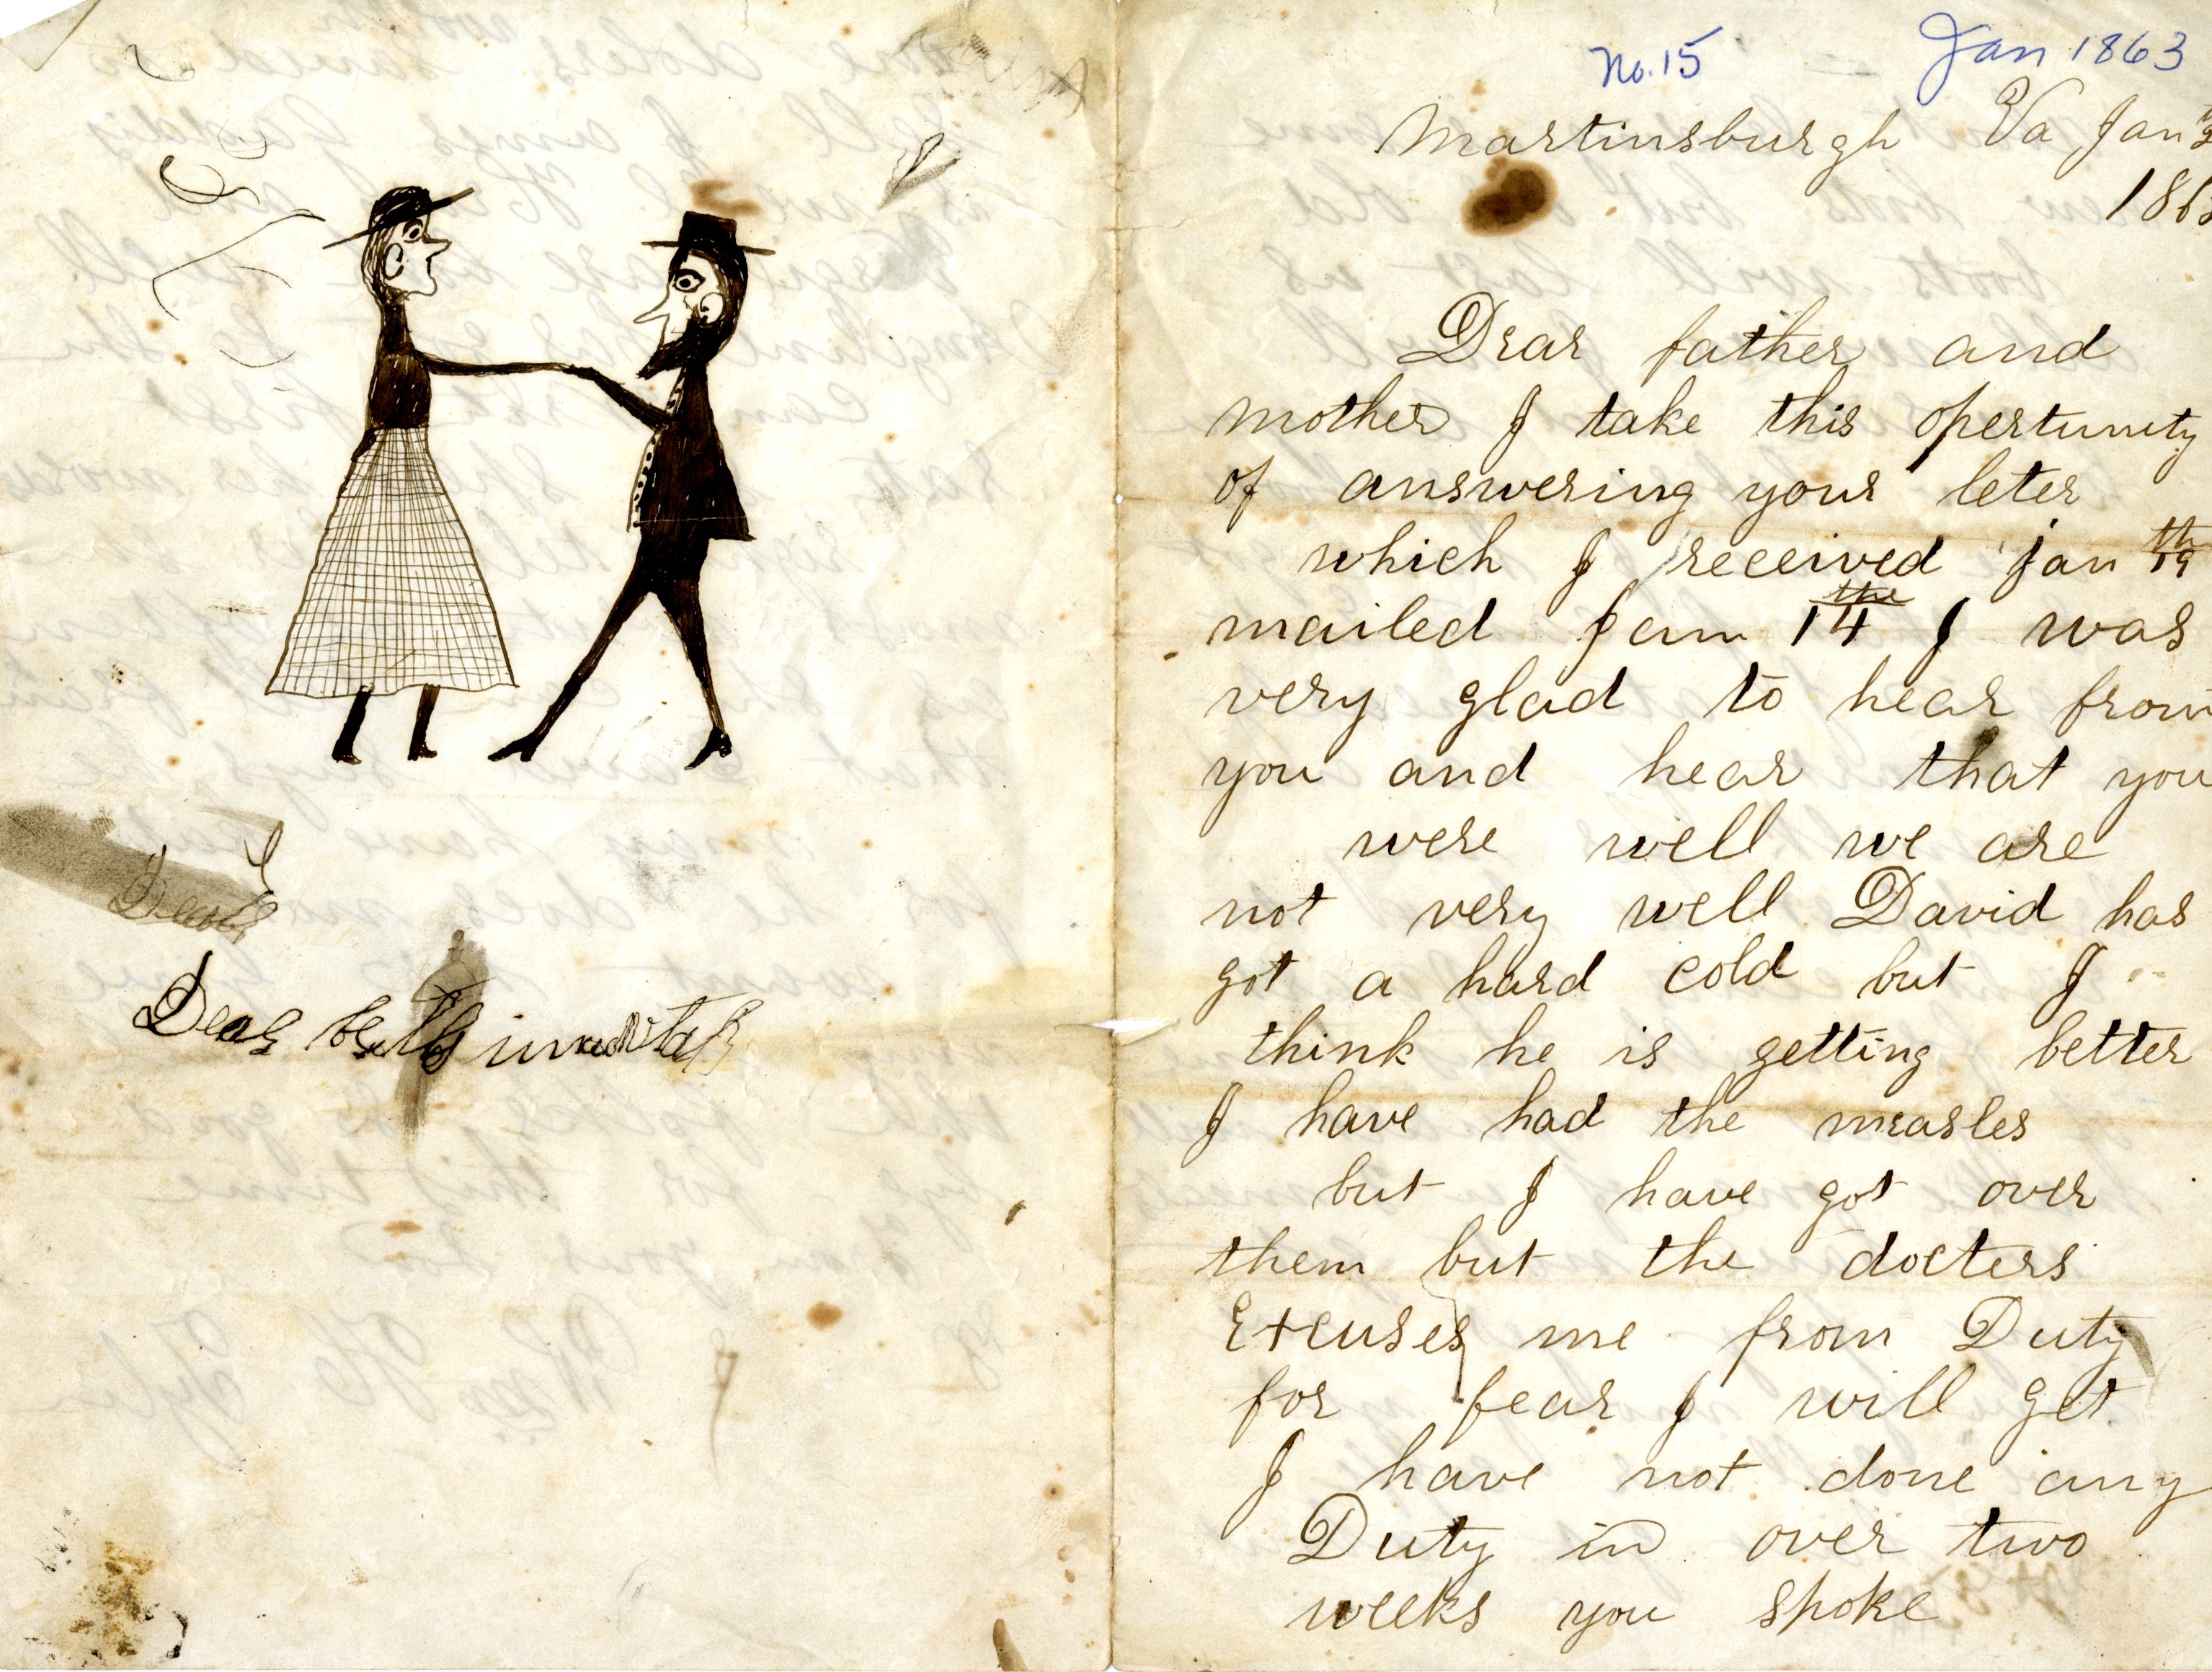 Dear
No. 15 Jan 1863
Martinsburgh Va Jan
186
Dear father and
mother I take this opertunity
of answering your leter
which I received jan 19th
mailed Jan 14 the I was
very glad to hear from
you and hear that you
were well we are
not very well David has
got a hard cold but I
think he is getting better
I have had the measles
but I have got over
them but the docters
Excuses me from Duty
for fear I will get
I have not done any
Duty in over two
weeks you spoke